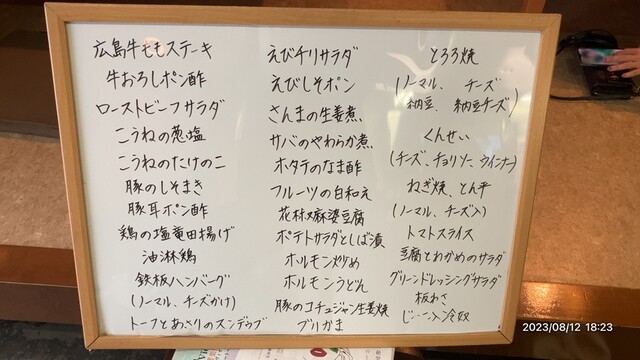 広島牛ももステーキ
牛おろしポン酢
ローストビーフサラダ
こうねの葱塩
こうねのたけのこ
豚のしそまき
豚耳ポン酢
鶏の塩竜田揚げ
油淋鶏
鉄板ハンバーグ
(ノーマル、チーズかけ)
トーフとあさりのスンデゥブ
えびチリサラダ
えびしそポン
さんまの生姜煮
サバのやわらか煮
ホタテのなま酢
フルーツの白和え
花材麻婆豆腐
ポテトサラダとしば漬
ホルモン炒め
ホルモンうどん
豚のコチュジャン生姜焼
ブリかま
とろろ焼
(ノーマル、チーズ
納豆、納豆チーズ)
くんせい
(チーズ、チョリソー、ウインナー)
ねぎ焼、とん平
(ノーマル、チーズ入)
トマトスライス
豆腐とわかめのサラダ
グリーンドレッシングサラダ
板わさ
じーこ入冷奴
2023/08/12 18:23